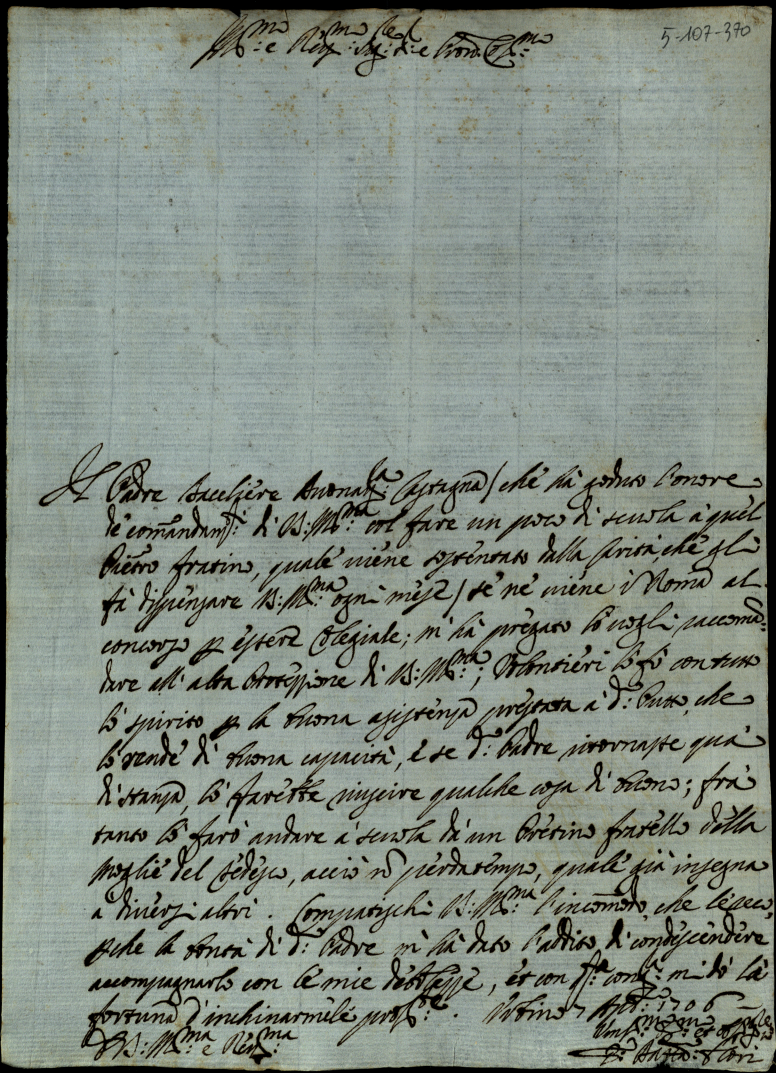 5-107-370
Ill:mo e Rev:mo Sig:r e Pron: Col:mo
Il Padre Bacelliere Buonau:ra Castagna / che hà goduto l'onore
de comandam:ti di V:S:Ill:ma col fare un poco di scuola à quel
Pietro fratino, quale viene sostentato dalla Carità, che gli
fà dispensare V:S:Ill:ma ogni mese / se ne viene à Roma al
concorso p essere Colegiale; m'hà pregato lo vogli raccoman=
dare all'alta Protessione di V:S:Ill:ma; Volontieri lo fò con tutto
lo spirito p la buona assistenza prestata à d:o Putto, che
lo rende di buona capacità, e se d:o Padre ritornasse quà
di stanza, lo farebbe riuscire qualche cosa di buono; frà
tanto lo farò andare à scuola da un Pretino fratello della
Moglie del Tedesco, acciò nõ perda tempo, quale già insegna
à diversi altri. Compatischi V:S:Ill:ma l'incomodo, che le reco,
pche la bontà di d:o Padre m'hà dato l'addito, di condescendere
accompagnarlo con le mie debolezze, et con m:i dò la
fortuna d'inchinarmele prof:te. Urbino 7 1706
D V:S:Ill:ma e Rev:ma